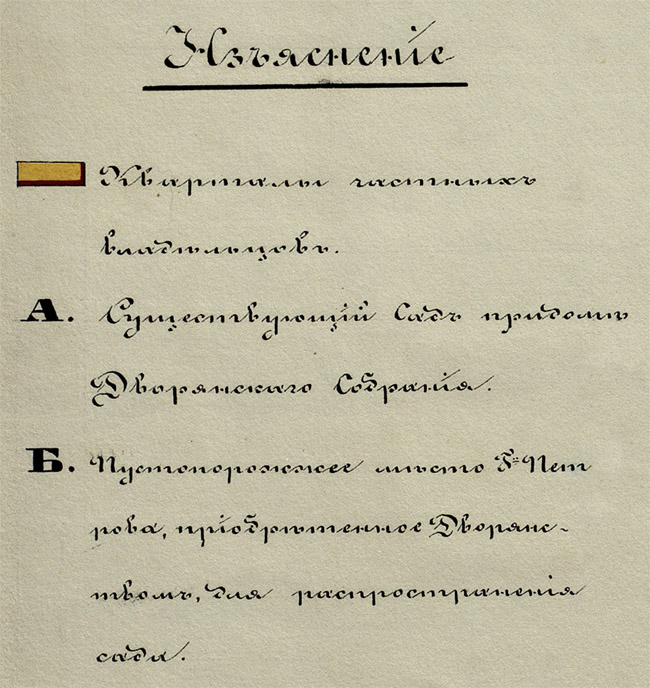 Изъясненіе
Кварталы частныхъ
владѣльцовъ.
А. Существующій Садъ придомѣ
Дворянскаго Собранія.
Б. Пустопорожжее мѣсто Гⁿ Пет
рова, пріобрѣтенное Дворянс-
твомъ, для распространенія
сада.